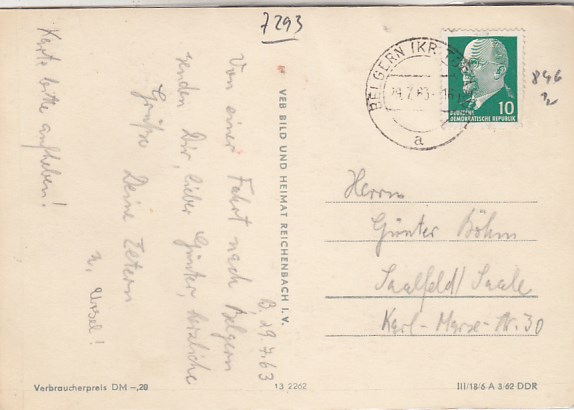 7293
Karte bitte aufheben!
B, 29.7.63
Von einer Fahrt nach Belgern
senden Dir, lieber Günter, herzliche
Grüße Deine Eltern
u. Ursel!
VEB BILD UND HEIMAT REICHENBACH I. V.
BELGERN (KR.
29.7.63-16
a
10
DEUTSCHE
DEMOKRATISCHE REPUBLIK
846
Herrn
Günter Böhm
Saalfeld/Saale
Karl-Marx-Str. 30
Verbraucherpreis DM -,20
13 2262
III/18/6 A 3/62 DDR